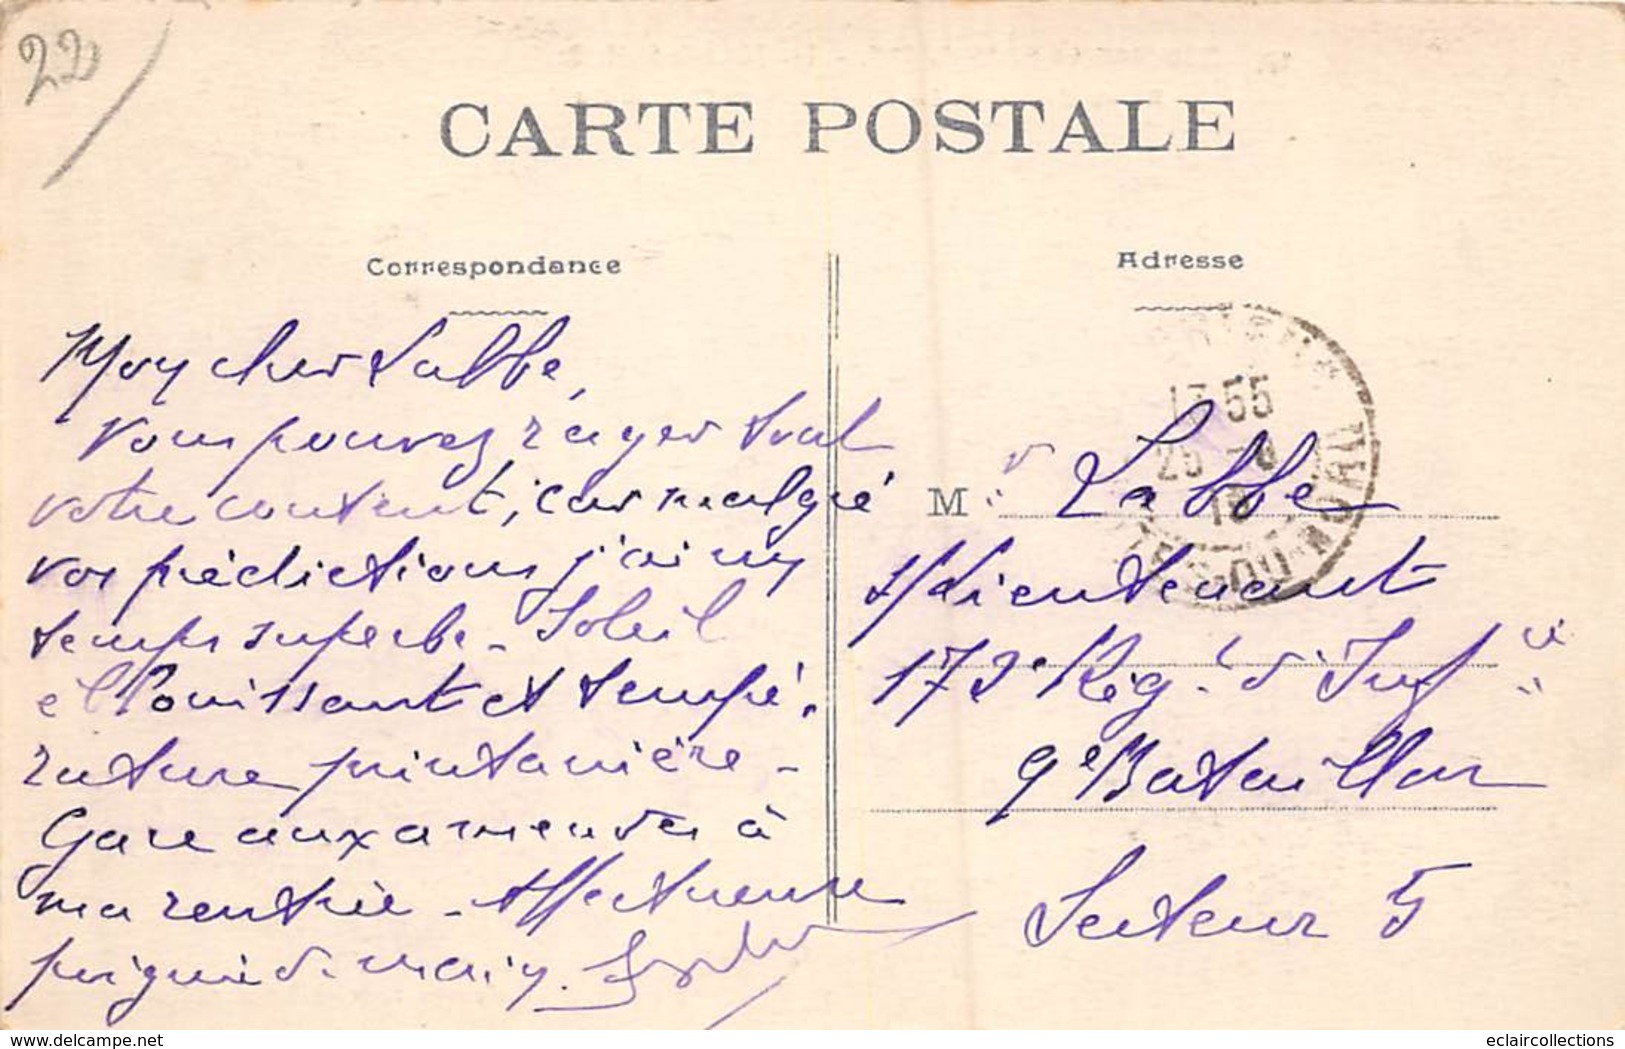 22
CARTE POSTALE
Correspondance
Mon cher Labbé,
Vous pouvez rager tout
votre content, car malgré
vos prédictions j'ai un
temps superbe - Soleil
éblouissant et tempé-
rature printanière -
Gare aux amendes à
ma rentrée - Affectueuse
poignée de main.
Adresse
55
25
18
DU-NORD
Mr Labbé
s/Lieutenant
173e Rég.t d'Inf.ie
9e Bataillon
Secteur 5
www.delcampe.net
eclaircollections